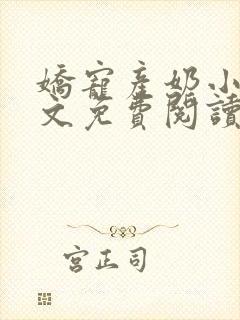 嬌寵產奶小
文免費閱讀
宮正司